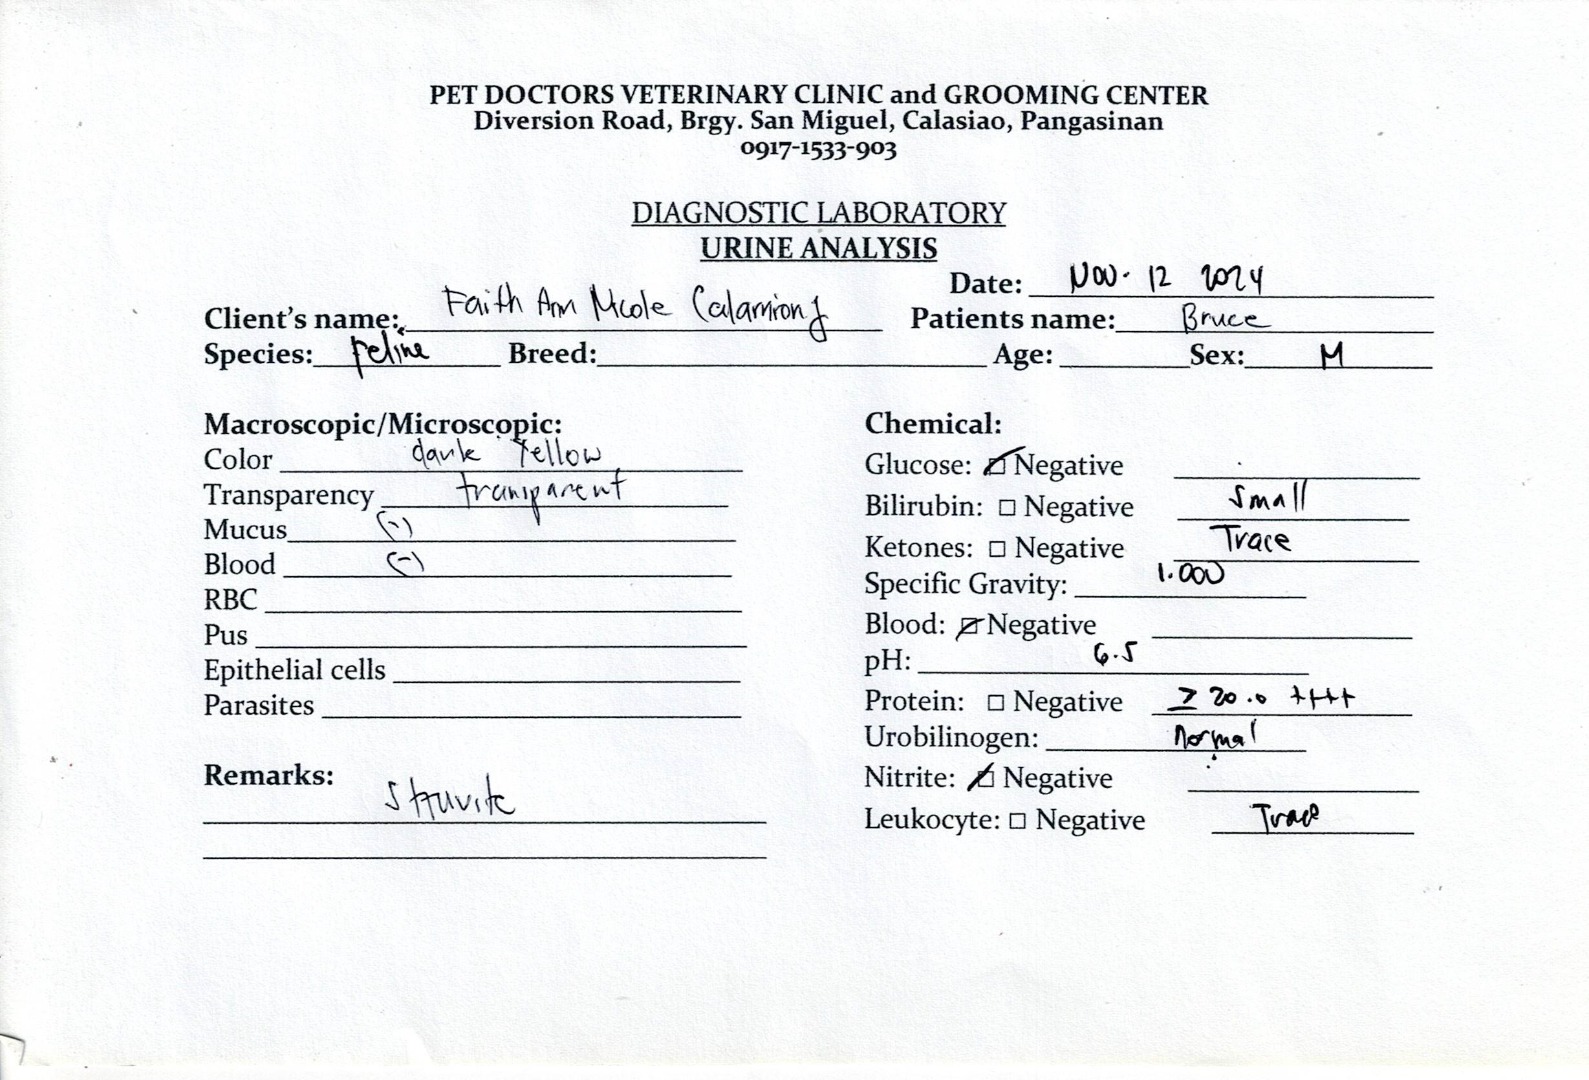 PET DOCTORS VETERINARY CLINIC and GROOMING CENTER
Diversion Road, Brgy. San Miguel, Calasiao, Pangasinan
0917-1533-903
DIAGNOSTIC LABORATORY
URINE ANALYSIS
Date: Nov. 12 2024
Client's name: Faith Ann Nicole Calamiong Patients name: Bruce
Species: Feline Breed: Age: Sex: M
Macroscopic/Microscopic:
Color dark Yellow
Transparency transparent
Mucus (-)
Blood (-)
RBC
Pus
Epithelial cells
Parasites
Remarks: Struvite
Chemical:
Glucose: ☑ Negative
Bilirubin: ☐ Negative Small
Ketones: ☐ Negative Trace
Specific Gravity: 1.000
Blood: ☑ Negative
pH: 6.5
Protein: ☐ Negative ≥ 20.0 ++++
Urobilinogen: Normal
Nitrite: ☑ Negative
Leukocyte: ☐ Negative Trace